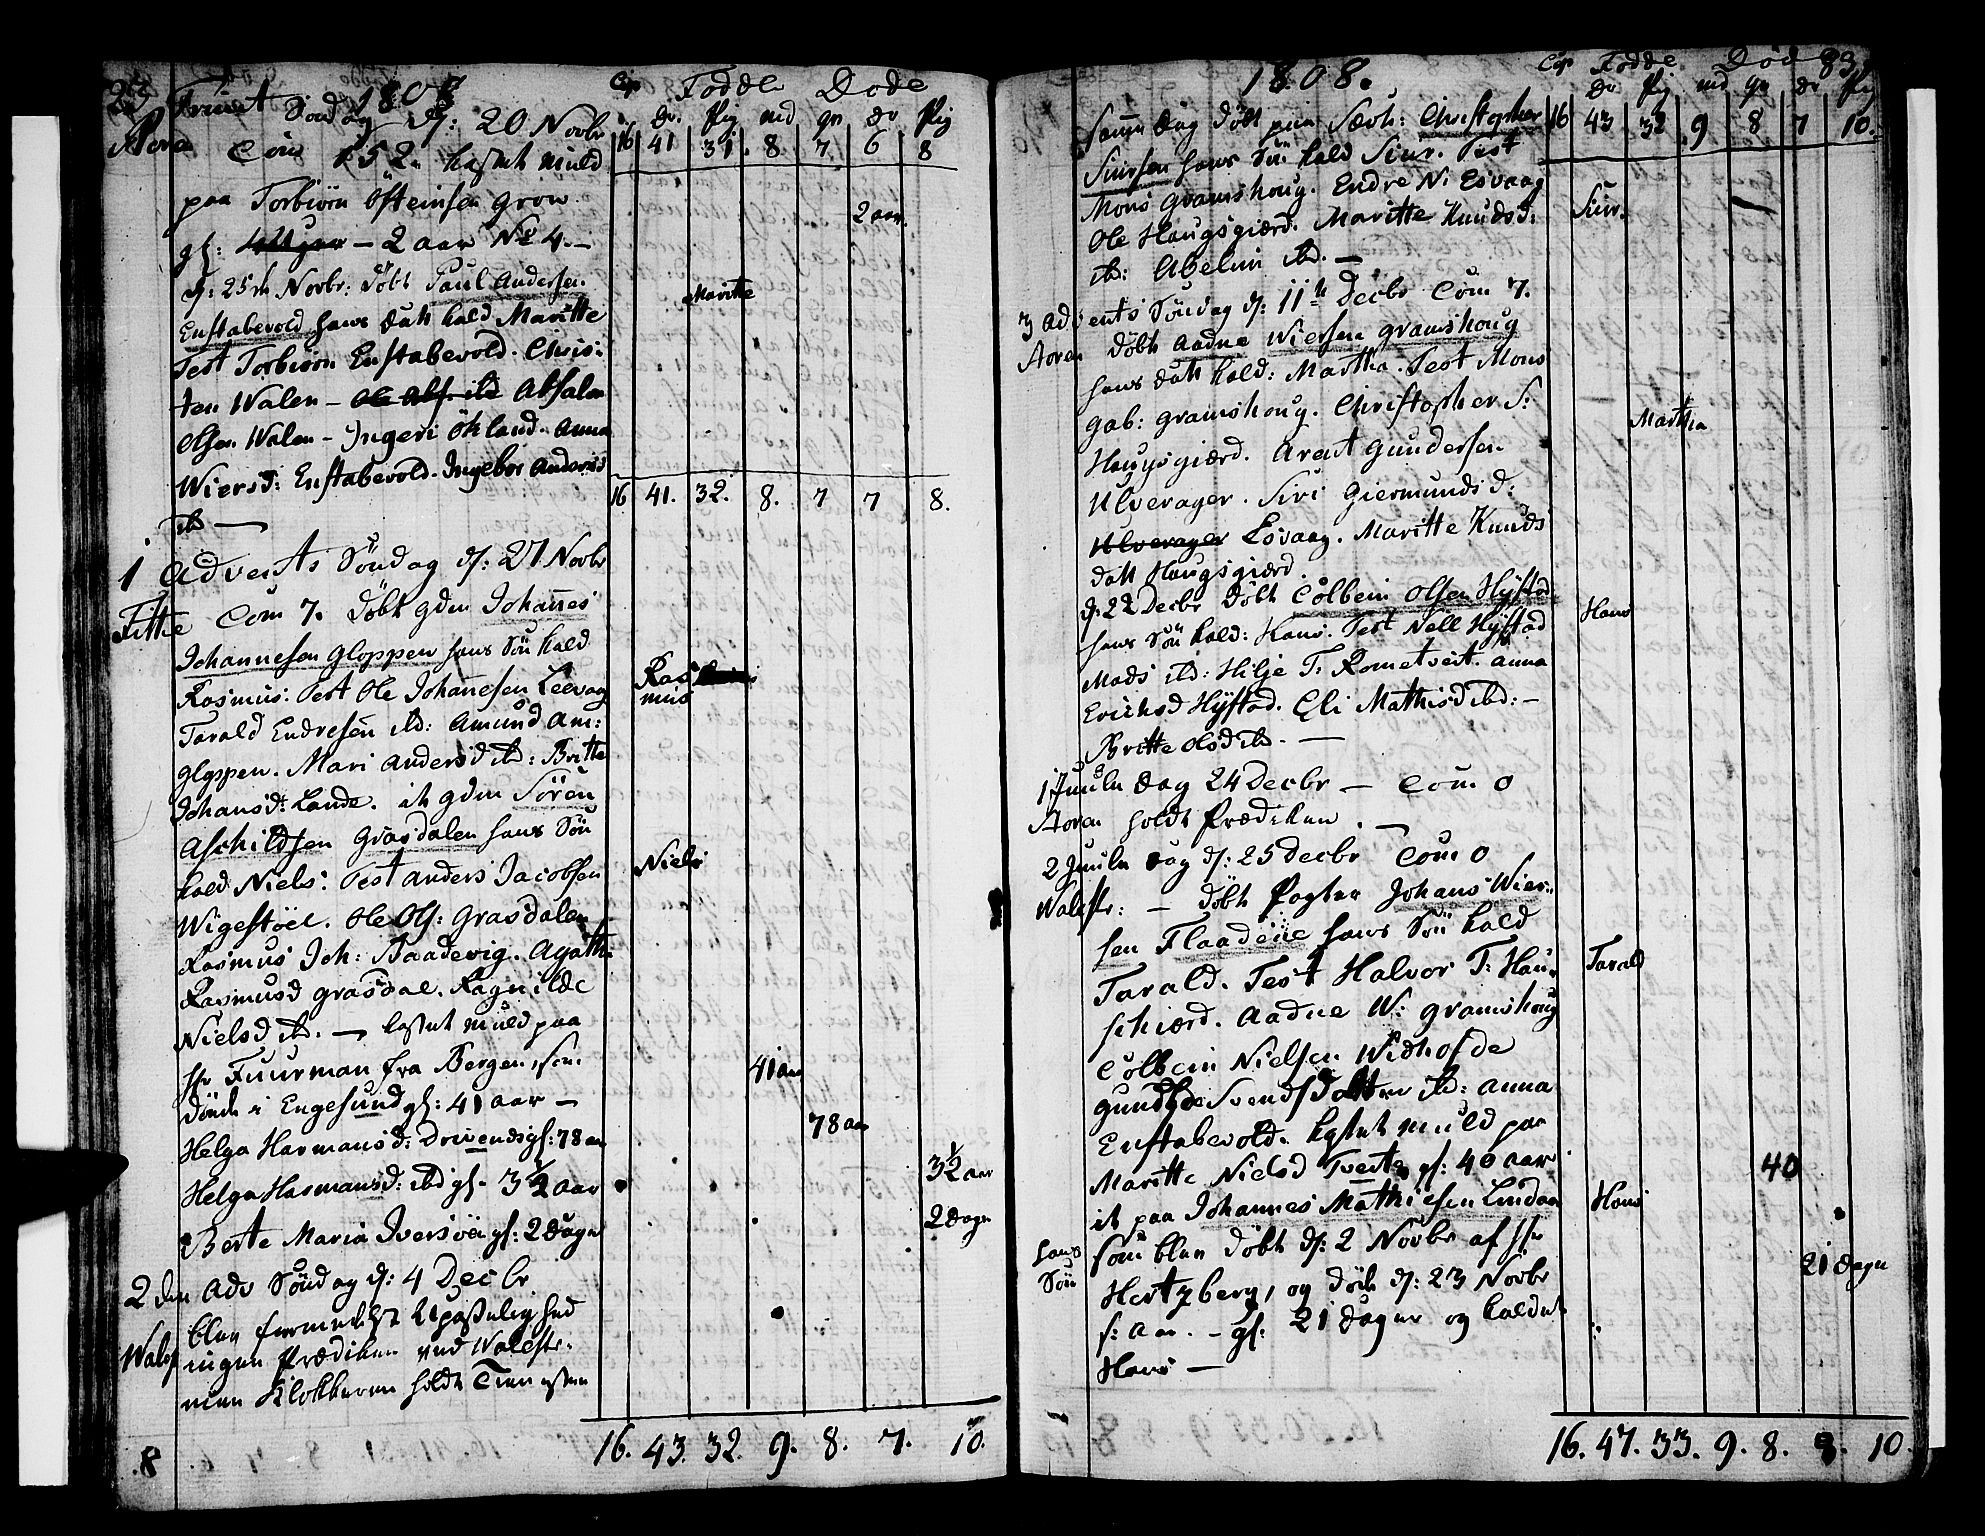 23 Trinit Søndag 1808 d: 20 Novbr
Støren Com 52. kastet muld
paa Torbiørn Østeinsen grow
gl: 2 aar No 4.
d: 25 Novbr: døbt Paul Andersen
Enstabevold hans datt kald Maritte
Test Torbiørn Enstabevold. Chris:
ten Walen - Absalon
Olsen Walen - Ingeri Økland - Anna
Wiersd: Enstabevold. Ingebor Andersd
ibd —
1 Advents Søndag d: 27 Novbr
Fittie Com 7. døbt gdm Johannes
Johannesen Gloppen hans Søn kald
Rasmus: Test Ole Johannesen Leevog
Tarald Endresen ibd: Amund Am:
Gloppen. Mari Andersd ibd: Britte
Johansd: Lande. it gdm Søren
Aschildsen Grasdalen hans Søn
kald Niels: Test Anders Jacobsen
Wigestöel. Ole Ols: Grasdalen
Rasmus Joh: Baadevig. Agathe
Rasmusd Grasdal. Ragnilde
Nielsd ibd. — kastet muld paa
Hr Fuurman fra Bergen, som
døde i Engesund gl: 41 aar —
Helga Harmansd: Drivenes gl: 78 aar
Helga Harmansd: ibd gl. 3½ aar
Berte Maria Iversøn gl: 2 dager
2den Adv Søndag d: 4 Decbr
blev formedelst Upasselighed
Walest ingen Prædiken ved Walestr.
men Klokkeren holdt Tienesten
Cop Fødde Døde
dr. Pig md qv dr Pig
16 41 31. 8 7 6 8
2 aar
Maritte
16 41. 32. 8. 7 7 8.
Ras
mus
Niels
41 aar
78 aar
3½ aar
2 dage
16. 43. 32. 9. 8. 7. 10.
8
1808.
samme dag døbt Christopher
Siursen hans Søn kald Siur. Test
Mons Gramshoug. Endre N: Esvaag
Ole Hougsgierd. Maritte Knudsd:
ibd: Abelin ibd. —
3 Advents Søndag d: 11te Decbr Com 7.
Støren døbt Aadne Wiersen Gramshoug
hans datt kald: Martha. Test Mons
Gab: Gramshoug. Christopher S:
Hougsgierd. Arent Gundersen
Ulverager. Siri Giermundsd:
Ulverager Esvaag. Maritte Knuds
datt Hougsgierd.
d. 22 Decbr døbt Colbein Olsen Hÿstad
hans Søn kald: Hans. Test Nell Hÿstad
Mads ibd: Hilje T: Rometveit. Anna
Erichsd Hÿstad. Eli Mathisd ibd: —
Britte Olsd ibd. —
1 Juule dag 24 Decbr — Com 0
Støren holdt Prædiken. —
2 Juule dag d: 25 Decbr Com 0
Walestr: — døbt Pagter Johans Wier:
sen Flaadene hans Søn kald
Tarald. Test Halvor T: Hou
schierd. Aadne W: Gramshoug
Colbein Nielsen Widhofde
Svendsdatter ibd: Anna
Enstabevold. kastet muld paa
Maritte Nielsd Tverte gl: 40 aar
it paa Johannes Mathiesen Lindaa
hans
Søn
som blev døbt d: 2 Novbr af Hr
Hertzberg, og døde d: 23 Novbr
s: Aar. - gl: 21 dager og kaldet
Hans —
Cop Fødde. Død 83
dr Pig md qv dr Pig
16 43 32 9 8 7 10.
Siur.
Martha
Hans
Tarald
40
Hans
21 dage
16. 47. 33. 9. 8. 10.